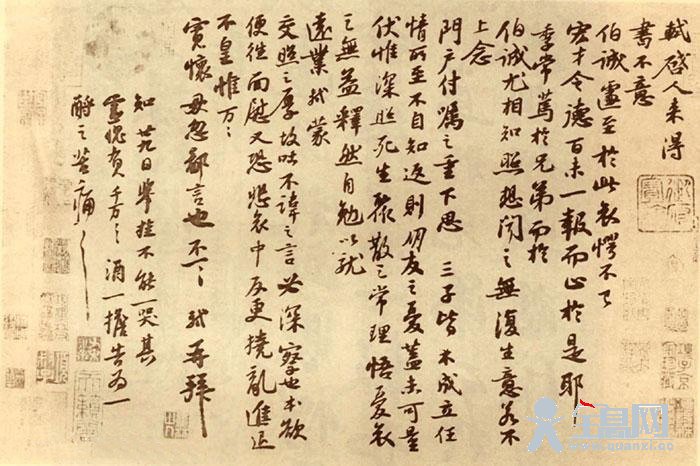 軾啓人来得
書不意
伯誠遽至於此哀愕不已
宏才令德百未一報而止於是耶
季常篤於兄弟而於
伯誠尤相知照想聞之無復生意若不
上念
門户付囑之重下思三子皆不成立任
情所至不自知返則朋友之憂蓋未可量
伏惟深照死生聚散之常理悟憂哀
之無益釋然自勉以就
遠業軾蒙
交照之厚故吐不諱之言必深察也本欲
便往面慰又恐悲哀中反更撓亂進退
不皇惟万〻
寬懷毋忽鄙言也不一〻軾再拜
知廿九日舉掛不能一哭其
靈愧負千万〻酒一擔告为一
酹之苦痛〻